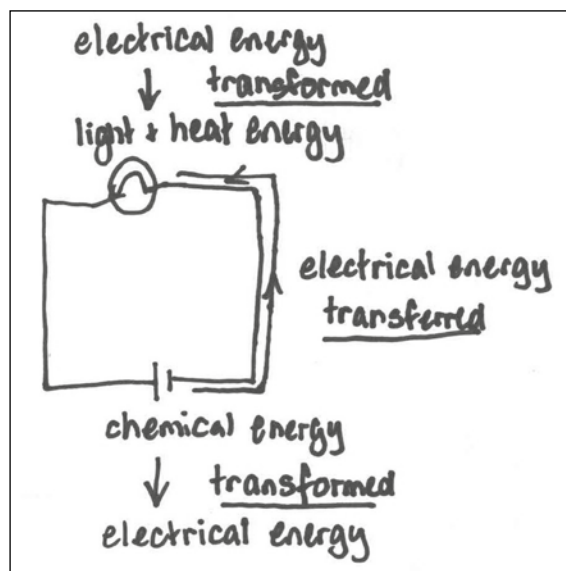 electrical energy
transformed
light + heat energy
electrical energy
transferred
chemical energy
transformed
electrical energy